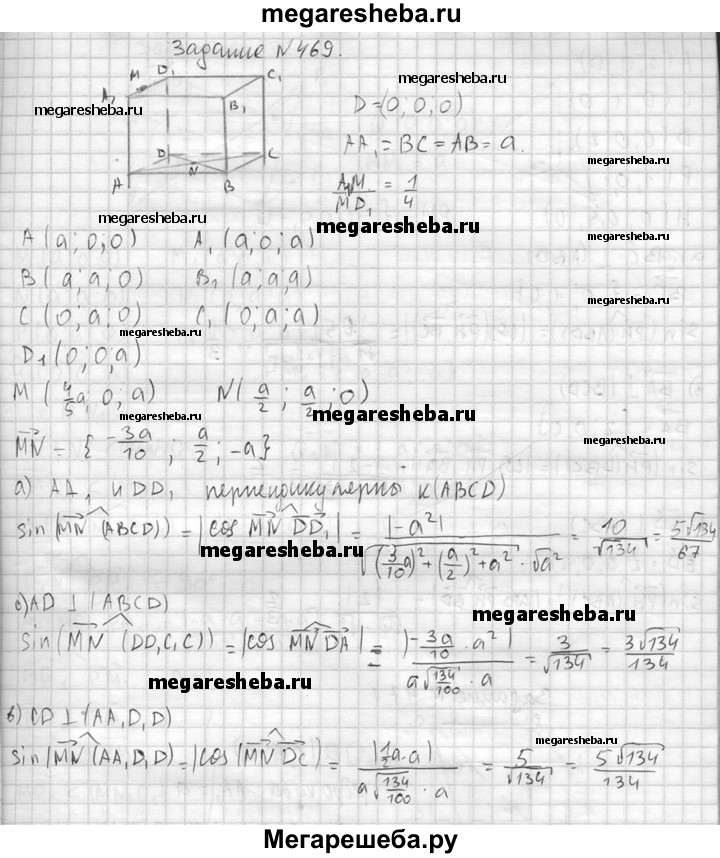 megaresheba.ru
Задание №469.
M D₁ C₁
A₁ B₁
megaresheba.ru
megaresheba.ru
D=(0;0;0)
AA₁ = BC = AB = a.
D C
N
A B
megaresheba.ru
A₁M/MD₁ = 1/4
megaresheba.ru
megaresheba.ru
A (a;0;0) A₁ (a;0;a)
megaresheba.ru
B (a;a;0) B₁ (a;a;a)
C (0;a;0) C₁ (0;a;a)
megaresheba.ru
megaresheba.ru
D₁ (0;0;a)
M (4/5a; 0; a) N (a/2; a/2; 0)
megaresheba.ru
MN = {-3a/10; a/2; -a}
megaresheba.ru
а) AA₁ и DD₁ перпендикулярны к (ABCD)
sin(MN (ABCD)) = |cos MN DD₁| = |-a²| / √((3/10a)² + (a/2)² + a²) · √a² = 10/√134 = 5√134/67
megaresheba.ru
б) AD ⊥ (ABCD)
megaresheba.ru
sin(MN (DD₁C₁C)) = |cos MN DA| = |-3a/10 · a²| / a√(134/100) · a = 3/√134 = 3√134/134
megaresheba.ru
в) CD ⊥ (AA₁D₁D)
megaresheba.ru
sin(MN (AA₁D₁D) = |cos(MN DC) = |1/2a·a| / a√(134/100) · a = 5/√134 = 5√134/134
megaresheba.ru
Мегарешеба.ру